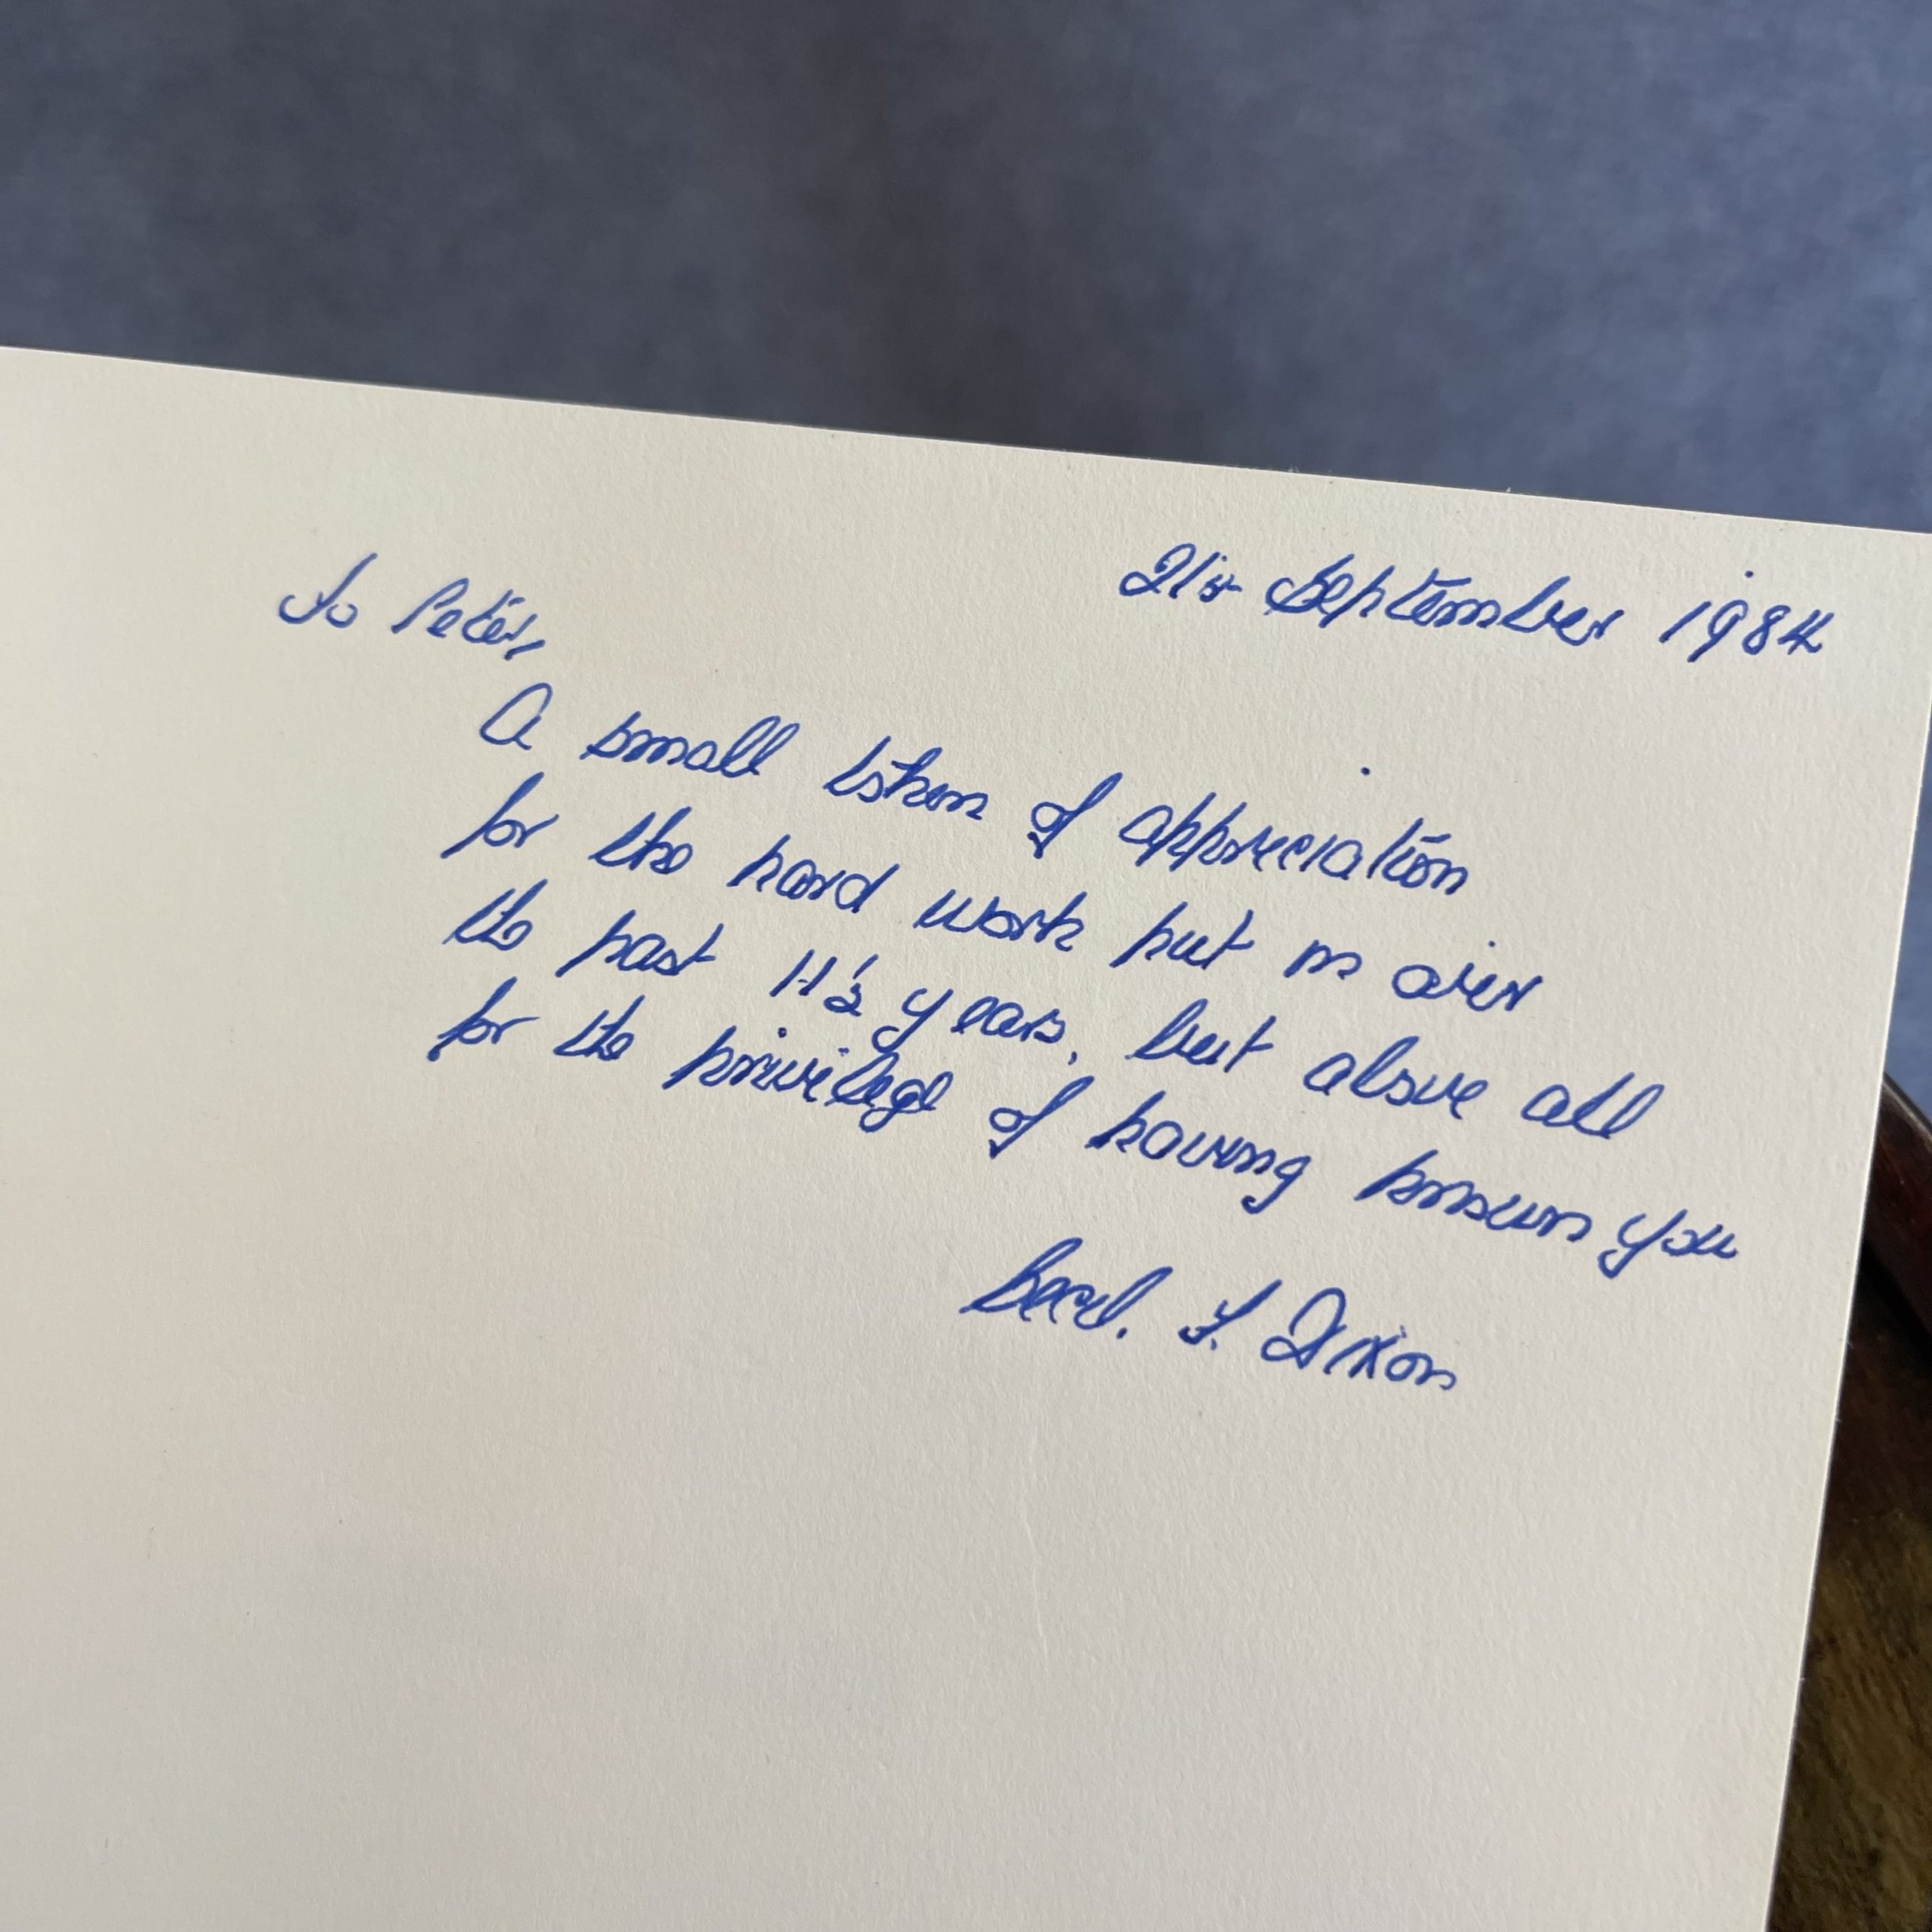 21st September 1984
To Peter,
A small token of appreciation
for the hard work put in over
the past years, but above all
for the privilege of having known you
F. Dixon